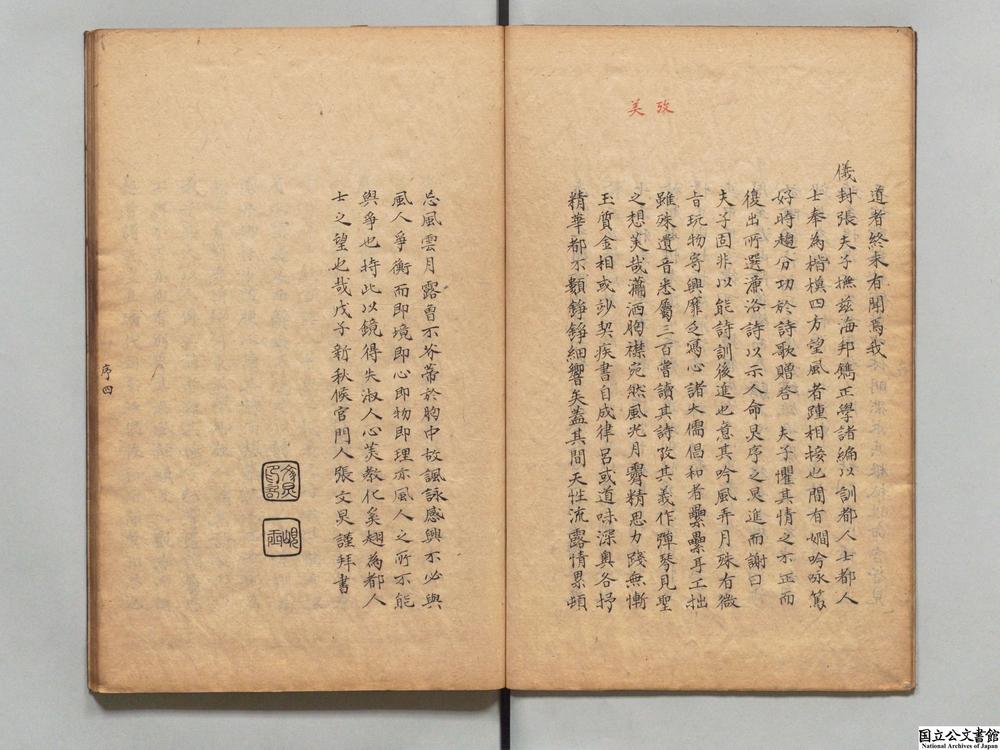 美 攷
道者終未有聞焉我
儀封張夫子撫茲海邦鐫正學諸編以訓都人士都人
士奉為楷模四方望風者踵相接也間有嫺吟咏篤
好時趨分功於詩歌贈荅 夫子懼其情之不正而
復出所選濂洛詩以示人命炅序之炅進而謝曰
夫子固非以能詩訓後進也意其吟風弄月殊有微
旨玩物寄興靡乏寫心諸大儒倡和者纍纍耳工拙
雖殊遺音悉屬三百嘗讀其詩攷其義作彈琴見聖
之想美哉瀟洒胸襟宛然風光月霽精思力踐無慚
玉質金相或鈔契疾書自成律呂或道味深奧各抒
精華都不類錚錚細響矣蓋其間天性流露情累頓
忘風雲月露曾不芥蒂於胸中故諷詠感興不必與
風人爭衡而即境即心即物即理亦風人之所不能
與爭也持此以鏡得失淑人心美教化奚翅為都人
士之望也哉戊子新秋候官門人張文炅謹拜書
序四
国立公文書館
National Archives of Japan